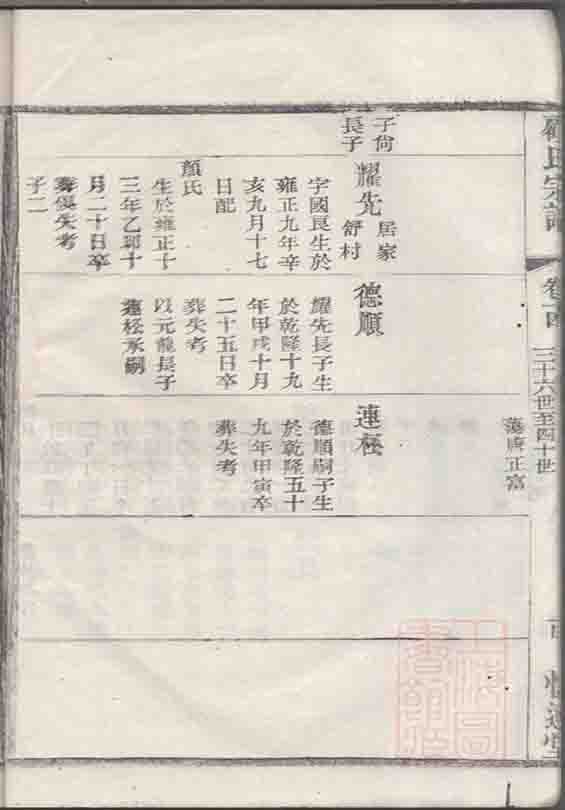 氏宗譜
卷二四
三十六世至四十世
子尙
長子
耀先
居家
舒村
字國良生於
雍正九年辛
亥九月十七
日配
顏氏
生於雍正十
三年乙卯十
月二十日卒
葬俱失考
子二
德順
耀先長子生
於乾隆十九
年甲戌十月
二十五日卒
葬失考
以元龍長子
連松承嗣
連松
德順嗣子生
於乾隆五十
九年甲寅卒
葬失考
上海圖
書館